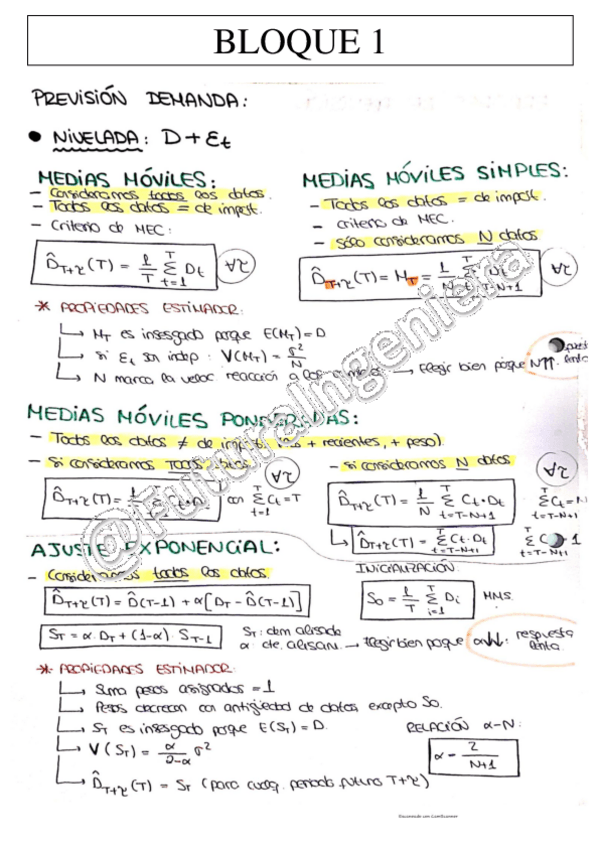 BLOQUE 1
PREVISIÓN DEMANDA:
• NIVELADA: D + Ɛt
MEDIAS MÓVILES:
- Consideramos todos los datos.
- Todos los datos = de impot.
- Criterio de MEC:
D̂T+τ(T) = 1/T Σ(t=1→T) Dt
∀τ
MEDIAS MÓVILES SIMPLES:
- Todos los datos = de impot.
- criterio de MEC.
- Sólo consideramos N datos
D̂T+τ(T) = MT = 1/N Σ(t=T-N+1→T) Dt
∀τ
* PROPIEDADES ESTIMADOR:
↳ MT es insesgado porque E(MT) = D
↳ Si Ɛt son indep: V(MT) = σ²/N
↳ N marca la veloc. reacción a → Elegir bien porque N↑↑: lenta
MEDIAS MÓVILES PONDERADAS:
- Todos los datos ≠ de (+ recientes, + peso).
- Si consideramos TODOS
∀τ
D̂T+τ(T) = Σ Ct·D con Σ(t=1→T) Ct = T
- si consideramos N datos
∀τ
D̂T+τ(T) = 1/N Σ(t=T-N+1→T) Ct·Dt Σ(t=T-N+1→T) Ct = N
↳ D̂T+τ(T) = Σ(t=T-N+1→T) Ct·Dt Σ(t=T-N+1→T) C 1
AJUSTE EXPONENCIAL:
- Consideramos todos los datos.
D̂T+τ(T) = D̂(T-1) + α[DT - D̂(T-1)]
INICIALIZACIÓN:
S0 = 1/T Σ(i=1→T) Di MMS.
ST = α·DT + (1-α)·ST-1
ST: dem alisada
α: cte. alisam. → Elegir bien porque α↓↓: respuesta lenta.
* PROPIEDADES ESTIMADOR:
↳ Suma pesos asignados = 1
↳ Pesos decrecen con antigüedad de datos, excepto S0.
↳ ST es insesgado porque E(ST) = D.
↳ V(ST) = α/2-α σ²
↳ D̂T+τ(T) = ST (para cualq. periodo futuro T+τ)
RELACIÓN α-N:
α = 2/N+1
@FuturaIngeniera
Escaneado con CamScanner